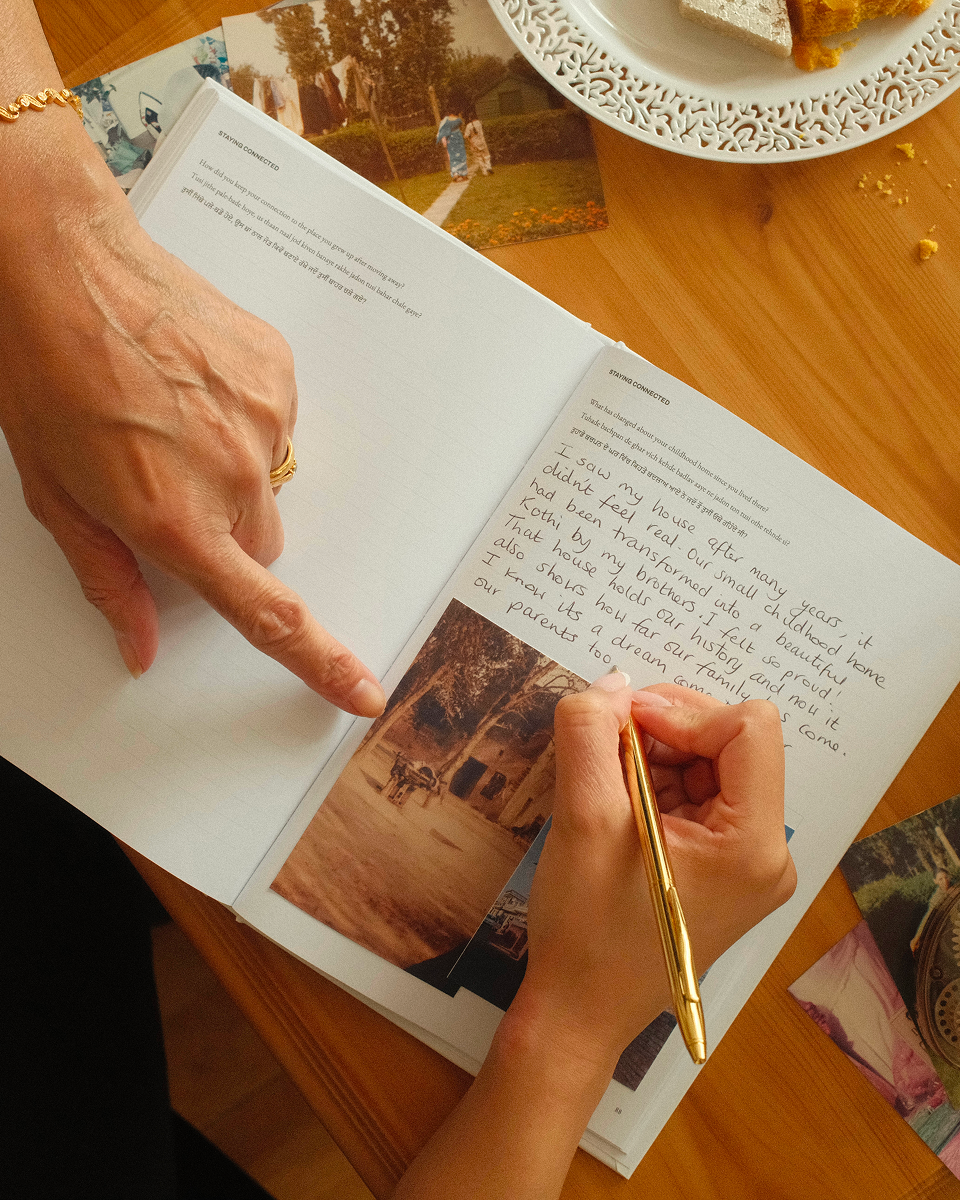 STAYING CONNECTED
How did you keep your connection to the place you grew up after moving away?
Tusi jithe pale-bade hoye, us thaan naal jod kiven banaye rakhe jadon tusi bahar chale gaye?
ਤੁਸੀਂ ਜਿੱਥੇ ਪਲੇ ਵਡੇ ਹੋਏ, ਉਸ ਥਾਂ ਨਾਲ ਜੋੜ ਕਿਵੇਂ ਬਣਾਏ ਰੱਖੇ ਜਦੋਂ ਤੁਸੀਂ ਬਾਹਰ ਚਲੇ ਗਏ?
STAYING CONNECTED
What has changed about your childhood home since you lived there?
Tuhade bachpan de ghar vich kehde badlav aaye ne jadon ton tusi othe rehnde si?
ਤੁਹਾਡੇ ਬਚਪਨ ਦੇ ਘਰ ਵਿੱਚ ਕਿਹੜੇ ਬਦਲਾਅ ਆਏ ਨੇ ਜਦੋਂ ਤੋਂ ਤੁਸੀਂ ਓਥੇ ਰਹਿੰਦੇ ਸੀ?
I saw my house after many years, it
didn't feel real. Our small childhood home
had been transformed into a beautiful
Kothi by my brothers. I felt so proud!
That house holds our history and now it
also shows how far our family has come.
I know its a dream come
our parents too
88